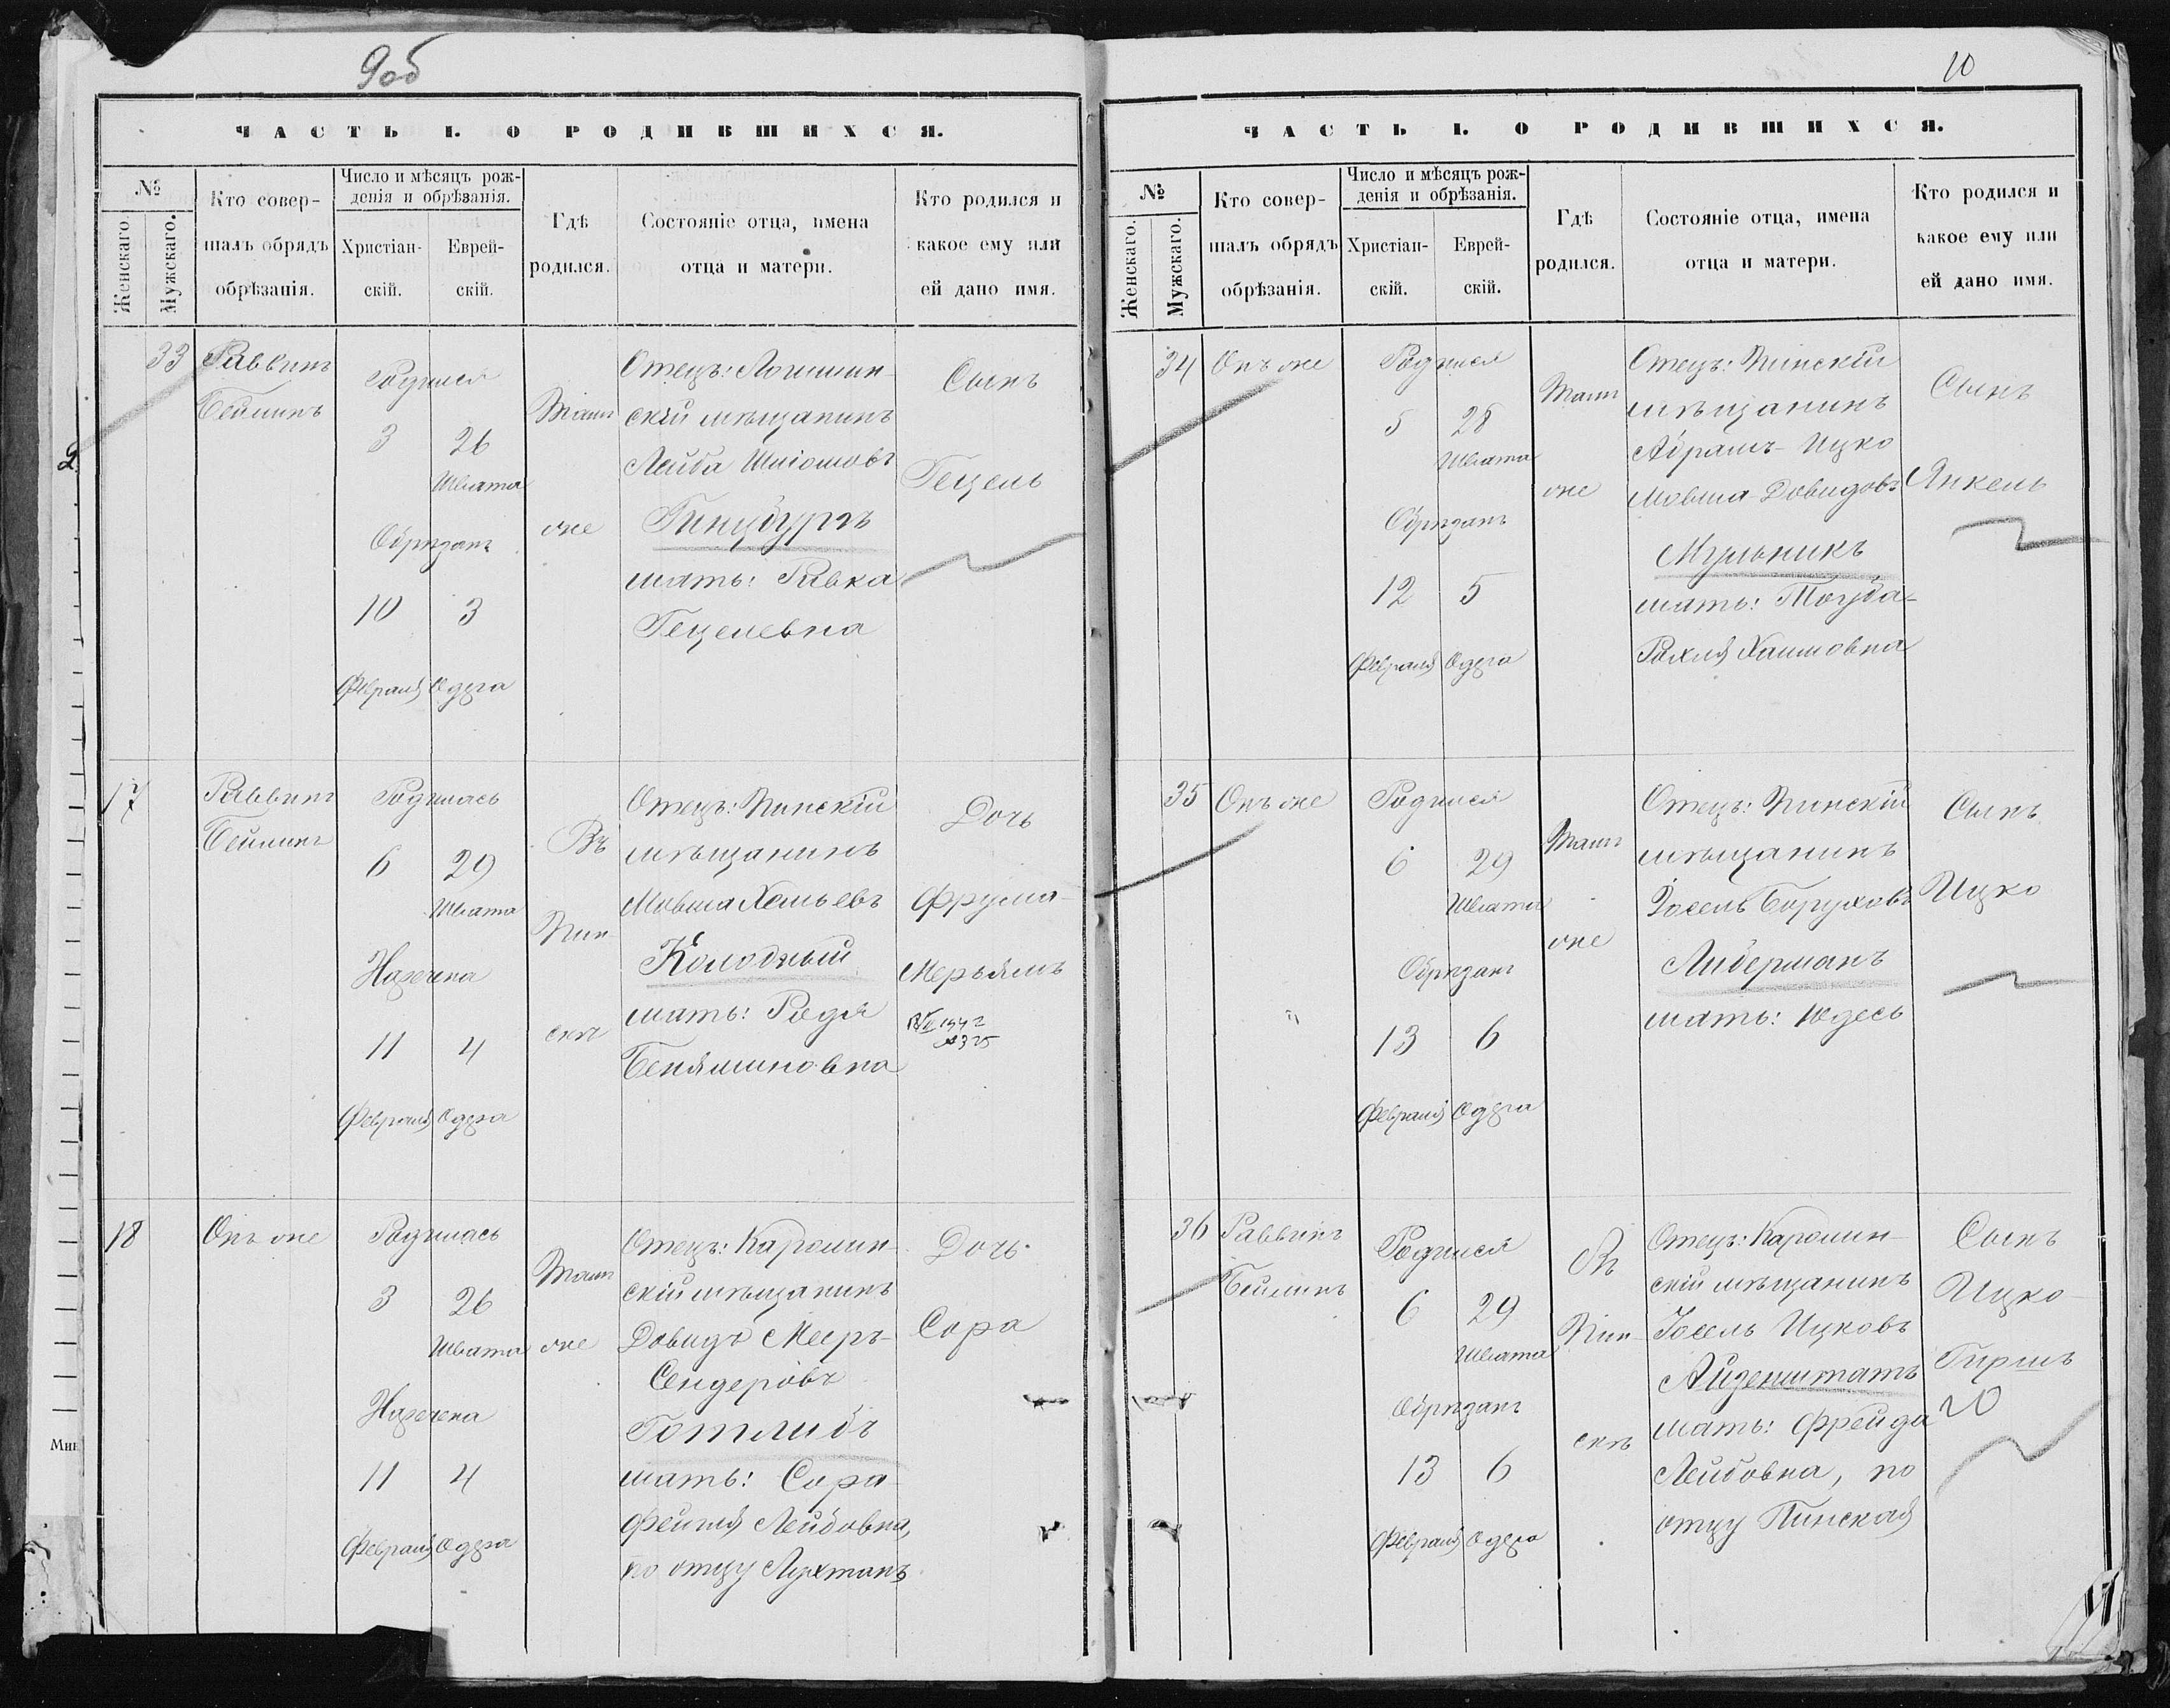 9об
ЧАСТЬ I. О РОДИВШИХСЯ.
№
Женскаго.
Мужскаго.
Кто совер-
шалъ обрядъ
обрѣзанія.
Число и мѣсяцъ рож-
денія и обрѣзанія.
Христіан-
скій.
Еврей-
скій.
Гдѣ
родился.
Состояніе отца, имена
отца и матери.
Кто родился и
какое ему или
ей дано имя.
33
Раввинъ
Бейлинъ
Родился
3 26
Швата
Обрѣзанъ
10 3
Февраля Одера
Тамъ
же
Отецъ: Логишин-
скій мѣщанинъ
Лейба Шліомовъ
Гинцбургъ
мать: Ривка
Гецелевна
Сынъ
Гецель
17
Раввинъ
Бейлинъ
Родилась
6 29
Швата
Наречена
11 4
Февраля Одера
Въ
Пин-
скѣ
Отецъ: Пинскій
мѣщанинъ
Мовша Хемьевъ
Колодный
мать: Родя
Беняминовна
Дочь
Фрума-
Мерьямъ
18
Онъ же
Родилась
3 26
Швата
Наречена
11 4
Февраля Одера
Тамъ
же
Отецъ: Каролин-
скій мѣщанинъ
Довидъ Мееръ-
Сендеровъ
Готлибъ
мать: Сора-
Фейгля Лейбовна,
по отцу Лухтанъ
Дочь
Сора
10
ЧАСТЬ I. О РОДИВШИХСЯ.
№
Женскаго.
Мужскаго.
Кто совер-
шалъ обрядъ
обрѣзанія.
Число и мѣсяцъ рож-
денія и обрѣзанія.
Христіан-
скій.
Еврей-
скій.
Гдѣ
родился.
Состояніе отца, имена
отца и матери.
Кто родился и
какое ему или
ей дано имя.
34
Онъ же
Родился
5 28
Швата
Обрѣзанъ
12 5
Февраля Одера
Тамъ
же
Отецъ: Пинскій
мѣщанинъ
Абрамъ-Ицко
Мовша Довидовъ
Мульникъ
мать: Тогуба-
Рохля Хаимовна
Сынъ
Янкель
35
Онъ же
Родился
6 29
Швата
Обрѣзанъ
13 6
Февраля Одера
Тамъ
же
Отецъ: Пинскій
мѣщанинъ
Іосель Боруховъ
Либерманъ
мать: Юдесь
Сынъ
Ицко
36
Раввинъ
Бейлинъ
Родился
6 29
Швата
Обрѣзанъ
13 6
Февраля Одера
Въ
Пин-
скѣ
Отецъ: Каролин-
скій мѣщанинъ
Іосель Ицковъ
Айзенштатъ
мать: Фрейда
Лейбовна, по
отцу Пинская
Сынъ
Ицко-
Гиршъ